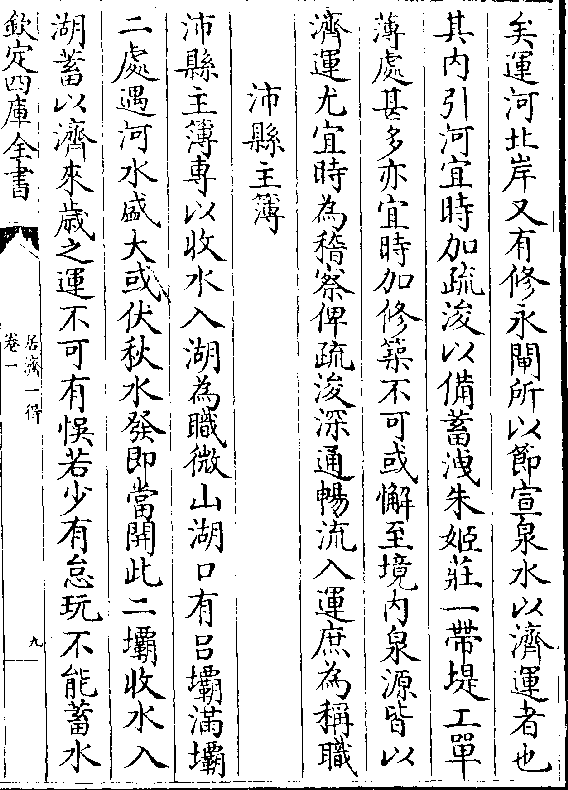 矣運河北岸又有修永閘所以節宣泉水以濟運者也
其内引河宜時加疏浚以備蓄洩朱姬莊一帶堤工單
薄處甚多亦宜時加修築不可或懈至境内泉源皆以
濟運尤宜時為稽察俾疏浚深通暢流入運庶為稱職
沛縣主簿
沛縣主簿專以收水入湖為職微山湖口有吕壩滿壩
二處遇河水盛大或伏秋水發即當開此二壩收水入
湖蓄以濟來歲之運不可有悞若少有怠玩不能蓄水
欽定四庫全書
居濟一得
卷一
九